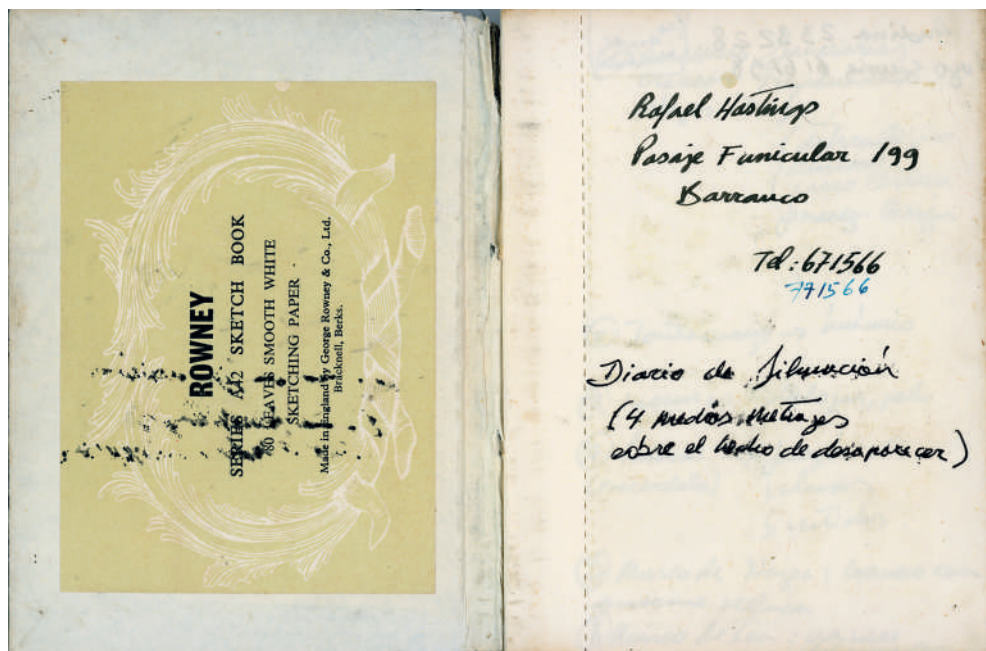 ROWNEY
SERIES A42 SKETCH BOOK
80 LEAVES SMOOTH WHITE
SKETCHING PAPER
Made in England by George Rowney & Co., Ltd.
Bracknell, Berks.
Rafael Hastings
Pasaje Funicular 199
Barranco
Tel: 671566
771566
Diario de Filmación
(4 medios metrajes
sobre el hecho de desaparecer)